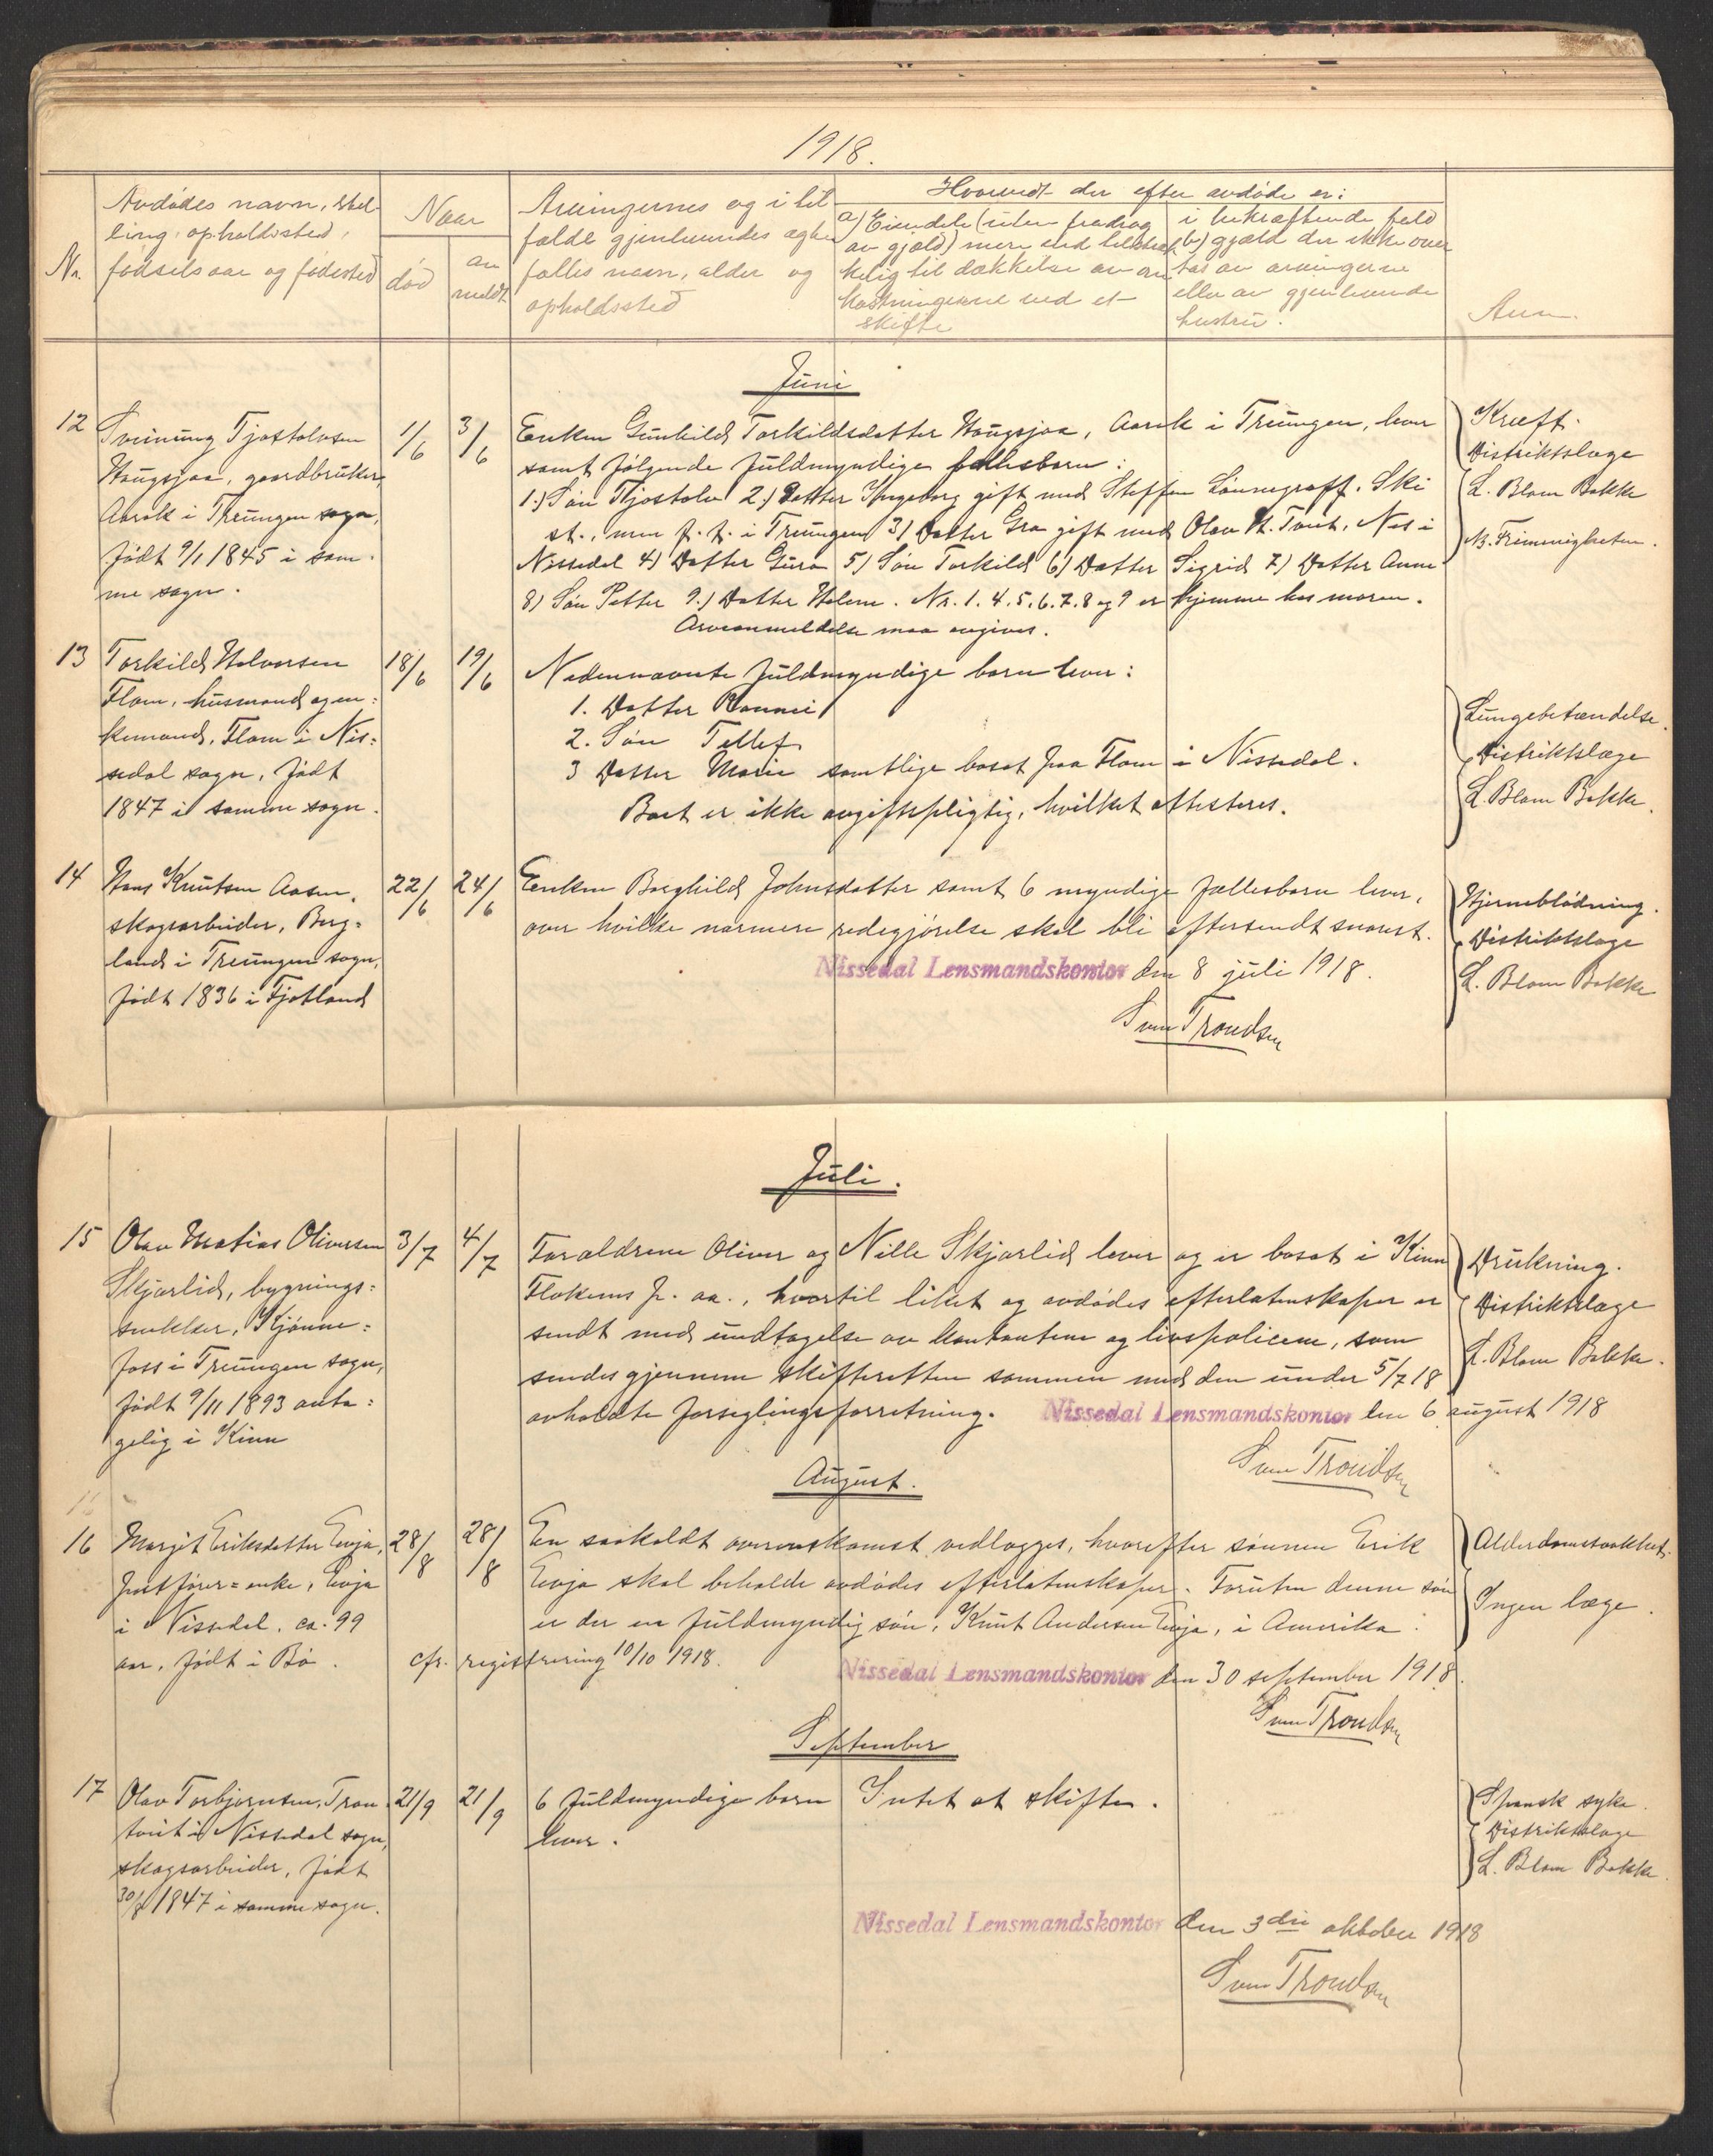 1918.
Nr.
Avdødes navn, stel-
ling, opholdssted,
fødselsaar og fødested
Naar
død
an
meldt
Arvingernes og i til
fælde gjenlevendes ægte
fælles navn, alder og
opholdssted
Hvorvidt der efter avdøde er:
a) Eiendele (uten fradrag
av gjæld) mere end tilstræk
kelig til dækkelse av om
kostningerne ved et
skifte
i bekræftende fald
b) gjæld der ikke over
tas av arvingerne
eller av gjenlevende
hustru.
Anm.
Juni
12
Sveinung Tjostolvsen
Haugsjaa, gaardbruker,
Aarak i Treungen sogn,
født 9/1 1845 i sam-
me sogn.
1/6
3/6
Enken Gunhild Torkildsdatter Haugsjaa, Aarak i Treungen, lever
samt følgende fuldmyndige fællesbarn:
1.) Søn Tjostolv 2.) Datter Ingeborg gift med Steffen Lønnegraff, Ski
st., men p. t. i Treungen 3) Datter Gro gift med Olav H. Tveit, Nes i
Nissedal 4) Datter Guro 5) Søn Torkild 6) Datter Sigrid 7) Datter Anne
8) Søn Petter 9.) Datter Helene. Nr. 1. 4. 5. 6. 7. 8 og 9 er hjemme hos moren.
Arveanmeldelse maa avgives.
Kræft.
Distriktslæge
L. Blom Bakke
13
Torkild Halvorsen
Flom, husmand og en=
kemand, Flom i Nis=
sedal sogn, født
1847 i samme sogn.
18/6
19/6
Nedennævnte fuldmyndige barn lever:
1. Datter
2. Søn Tellef
3 Datter Marie samtlige bosat paa Flom i Nissedal.
Boet er ikke avgiftspligtig, hvilket attesteres.
Lungebetændelse.
Distriktslæge
L. Blom Bakke.
14
Hans Knutsen Aasen,
skogsarbeider, Berg=
land i Treungen sogn,
født 1836 i Fjotland
22/6
24/6
Enken Borghild Johnsdatter samt 6 myndige fællesbarn lever,
over hvilke nærmere redegjørelse skal bli eftersendt snarest.
Nissedal Lensmandskontor den 8 juli 1918.
Sven Trondsen
Hjerneblødning.
Distriktslæge
L. Blom Bakke
Juli.
15
Olav Matias Oliversen
Skjærlid, bygnings=
snekker, Kjønne=
foss i Treungen sogn,
født 9/11 1893 anta=
gelig i Kinn
3/7
4/7
Forældrene Oliver og Nille Skjærlid lever og er bosat i Kinn
p. aa., hvortil liket og avdødes efterlatenskaper er
sendt med undtagelse av kontantene og livspolicene, som
sendes gjennem skifteretten sammen med den under 5/7 18
avholdte forseglingsforretning. Nissedal Lensmandskontor den 6 august 1918
Sven Trondsen
Drukning.
Distriktslæge
L. Blom Bakke.
August.
16
Margit Eriksdatter Eivja,
postfører=enke, Eivja
i Nissedal, ca. 99
aar, født i Bø.
28/8
28/8
En saakaldt overenskomst vedlægges, hvorefter sønnen Erik
Eivja skal beholde avdødes efterlatenskaper. Foruten denne søn
er der en fuldmyndig søn, Knut Andersen Eivja, i Amerika.
cfr. registrering 10/10 1918.
Nissedal Lensmandskontor den 30 september 1918.
Sven Trondsen
Alderdomssvakhet.
Ingen læge.
September
17
Olav Torbjørnsen, Tron
tveit i Nissedal sogn,
skogsarbeider, født
30/8 1847 i samme sogn.
21/9
21/9
6 fuldmyndige barn
lever.
Intet at skifte.
Spansk syke.
Distriktslæge
L. Blom Bakke.
Nissedal Lensmandskontor den 3die oktober 1918
Sven Trondsen